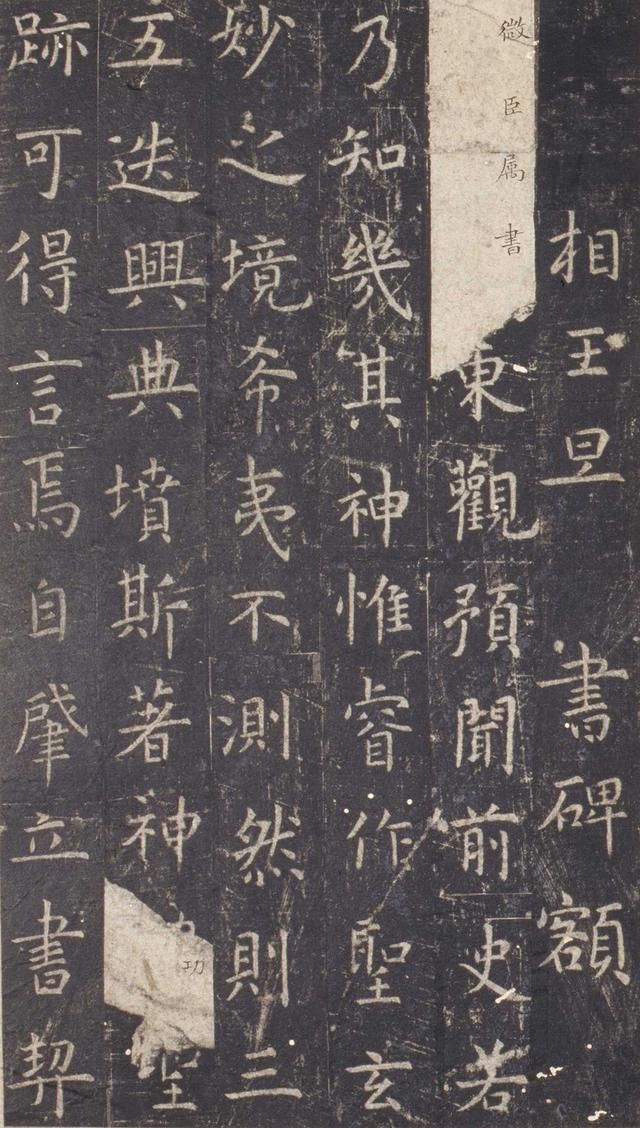 相王旦書碑額
微臣属書
東觀預聞前史若
乃知幾其神惟睿作聖玄
妙之境希夷不測然則三
五迭興典墳斯著神功聖
跡可得言焉自肇立書契